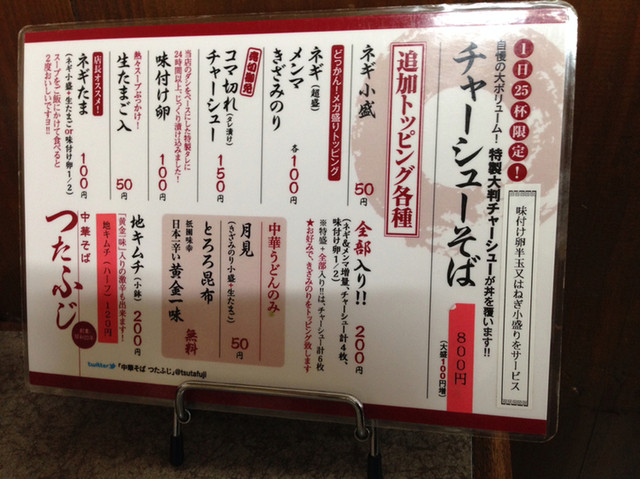 1日25杯限定!
自慢の大ボリューム!特製大判チャーシューが丼を覆います!!
チャーシューそば
800円
(大盛100円増)
味付け卵半玉又はねぎ小盛りをサービス
追加トッピング各種
ネギ小盛 50円
どっかん!メガ盛りトッピング
ネギ(超盛)
メンマ
きざみのり
各100円
コマ切れ(タレ漬け)
チャーシュー 150円
当店のダシをベースにした特製タレに
24時間以上、じっくり漬け込みました!
味付け卵 100円
熱々スープぶっかけ!
生たまご入 50円
店長オススメ!
ネギたま 100円
(ネギ小盛+生たまごor味付け卵1/2)
スープをご飯にかけて食べると
2度おいしいですヨ!!
全部入り!! 200円
(ネギ&メンマ増量、チャーシュー計4枚、
味付け卵1/2)
※特盛+全部入り!!は、チャーシュー計6枚
★お好みで、きざみのりをトッピング致します
中華うどんのみ
月見 50円
(きざみのり小盛+生たまご)
とろろ昆布
祇園味幸
日本一辛い黄金一味
無料
地キムチ(小鉢) 200円
「黄金一味」入りの激辛も出来ます!
地キムチ(ハーフ)120円
中華そば
つたふじ
twitter「中華そば つたふじ」@tsutafuji